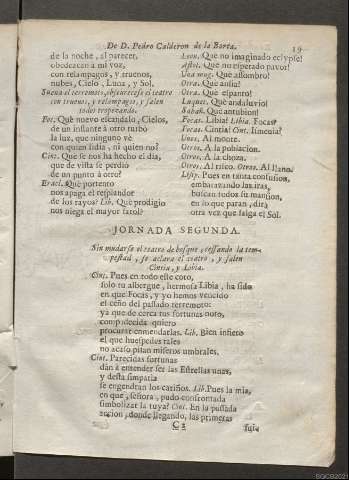 De D. Pedro Calderon de la Barca.
19
de la noche, al parecer,
obedezcan à mi voz,
con relampagos, y truenos,
nubes, Cielo, Luna, y Sol.
Suena el terremoto, obscurecese el teatro
con truenos, y relampagos, y salen
todos tropezando.
Foc. Què nuevo escandalo, Cielos,
de un instante à otro turbò
la luz, que ninguno vè
con quien lidia, ni quien no?
Cint. Que se nos ha hecho el dia,
que de vista se perdiò
de un punto à otro?
Eracl. Què portento
nos apaga el resplandor
de los rayos? Lib. Què prodigio
nos niega el mayor farol?
Leon. Què no imaginado eclypse!
Astol. Què no esperado pavor!
Una mug. Què assombro!
Otra. Què ansia!
Otra. Què espanto!
Luquet. Què andaluvio!
Babañ. Què antubion!
Focas. Libia! Libia. Focas!
Focas. Cintia! Cint. Ismenia!
Unos. Al monte.
Otros. A la poblacion.
Otros. A la choza.
Otros. Al risco. Otros. Al llano.
Lisip. Pues en tanta confusion,
embarazando las iras,
buscan todos su mansion,
en lo que paran, dirà
otra vez que salga el Sol.
JORNADA SEGUNDA.
Sin mudarse el teatro de bosque, cessando la tem-
pestad, se aclara el teatro, y salen
Cintia, y Libia.
Cint. Pues en todo este coto,
solo tu albergue, hermosa Libia, ha sido
en que Focas, y yo hemos vencido
el ceño del passado terremoto:
ya que de cerca tus fortunas noto,
compadecida quiero
procurar enmendarlas. Lib. Bien infiero
el que huespedes tales
no acaso pisan miseros umbrales.
Cint. Parecidas fortunas
dan à entender ser las Estrellas unas,
y desta simpatia
se engendran los cariños. Lib. Pues la mia,
en què, señora, pudo confrontada
simbolizar la tuya? Cint. En la passada
accion, donde llegando, las primeras
C2
fuis